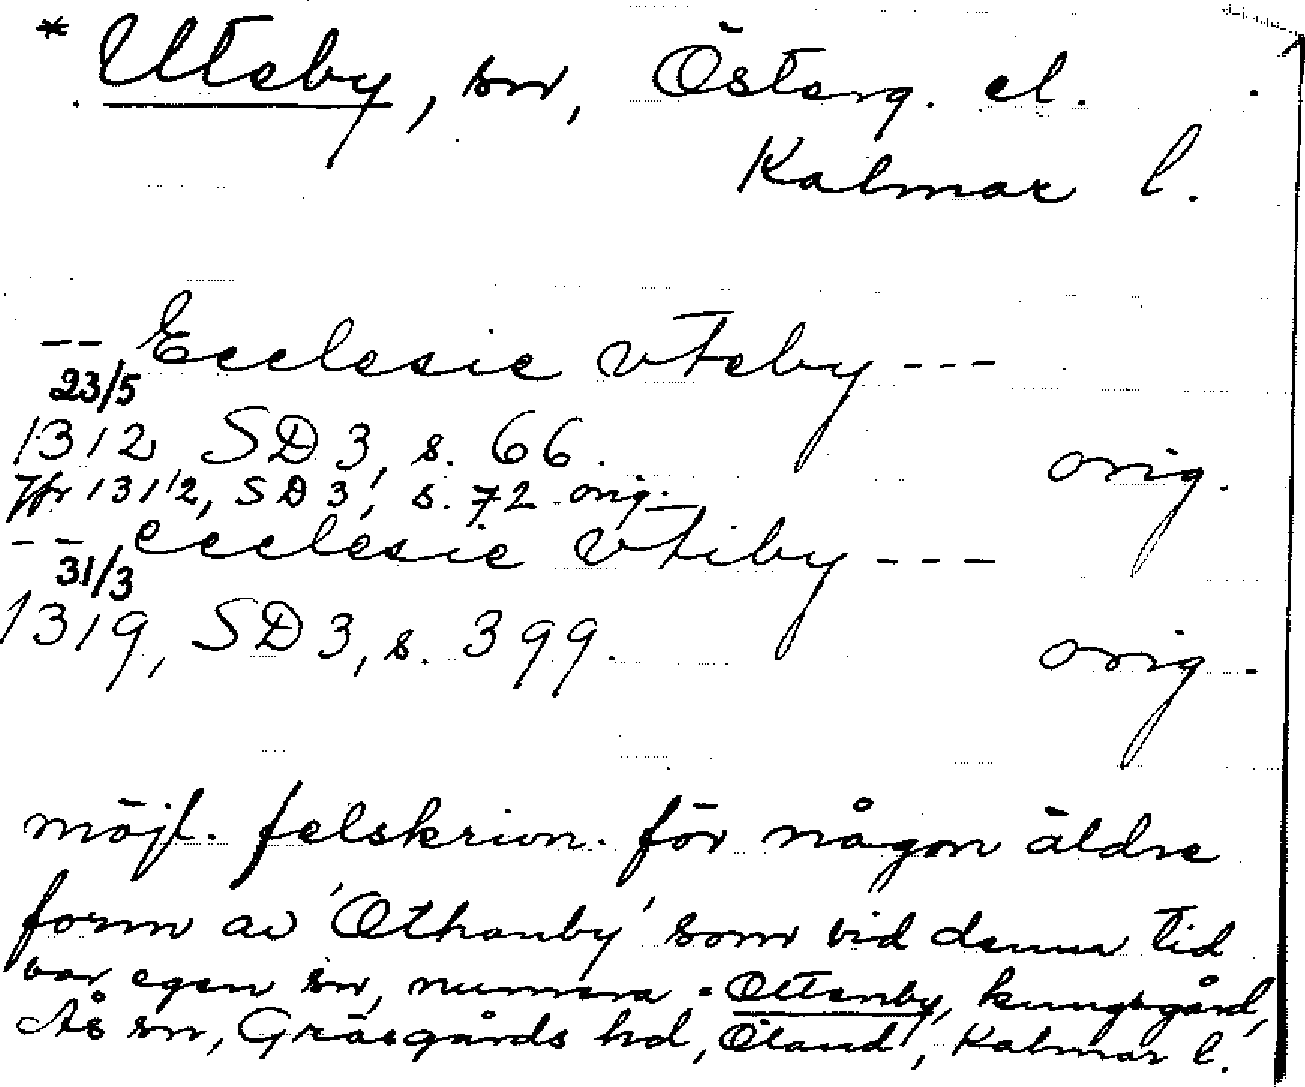 * Uteby, sn, Österg. el.
Kalmar l.
-- Ecclesie vteby ---
23/5
1312 SD 3, s. 66. orig.
Jfr 1312, SD 3, s. 72 orig.
-- ecclesie vtiby ---
31/3
1319, SD 3, s. 399. orig.
möjl. felskrivn. för någon äldre
form av 'Othanby' som vid denna tid
var egen sn, numera Ottenby, kungsgård,
Ås sn, Gräsgårds hd, Öland, Kalmar l.